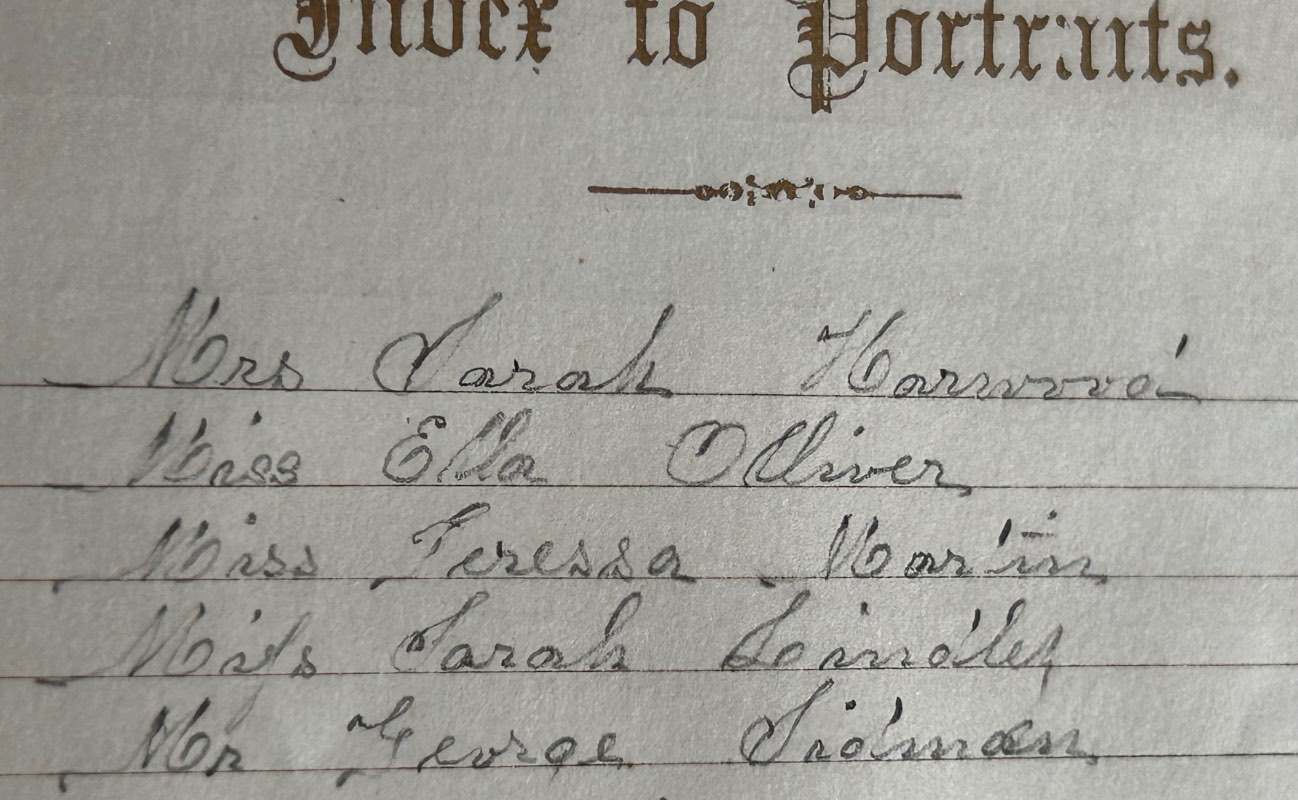 Index to Portraits.
Mrs Sarah Harwood
Miss Ella Olliver
Miss Teressa Martin
Miss Sarah Lindley
Mr George Sidman